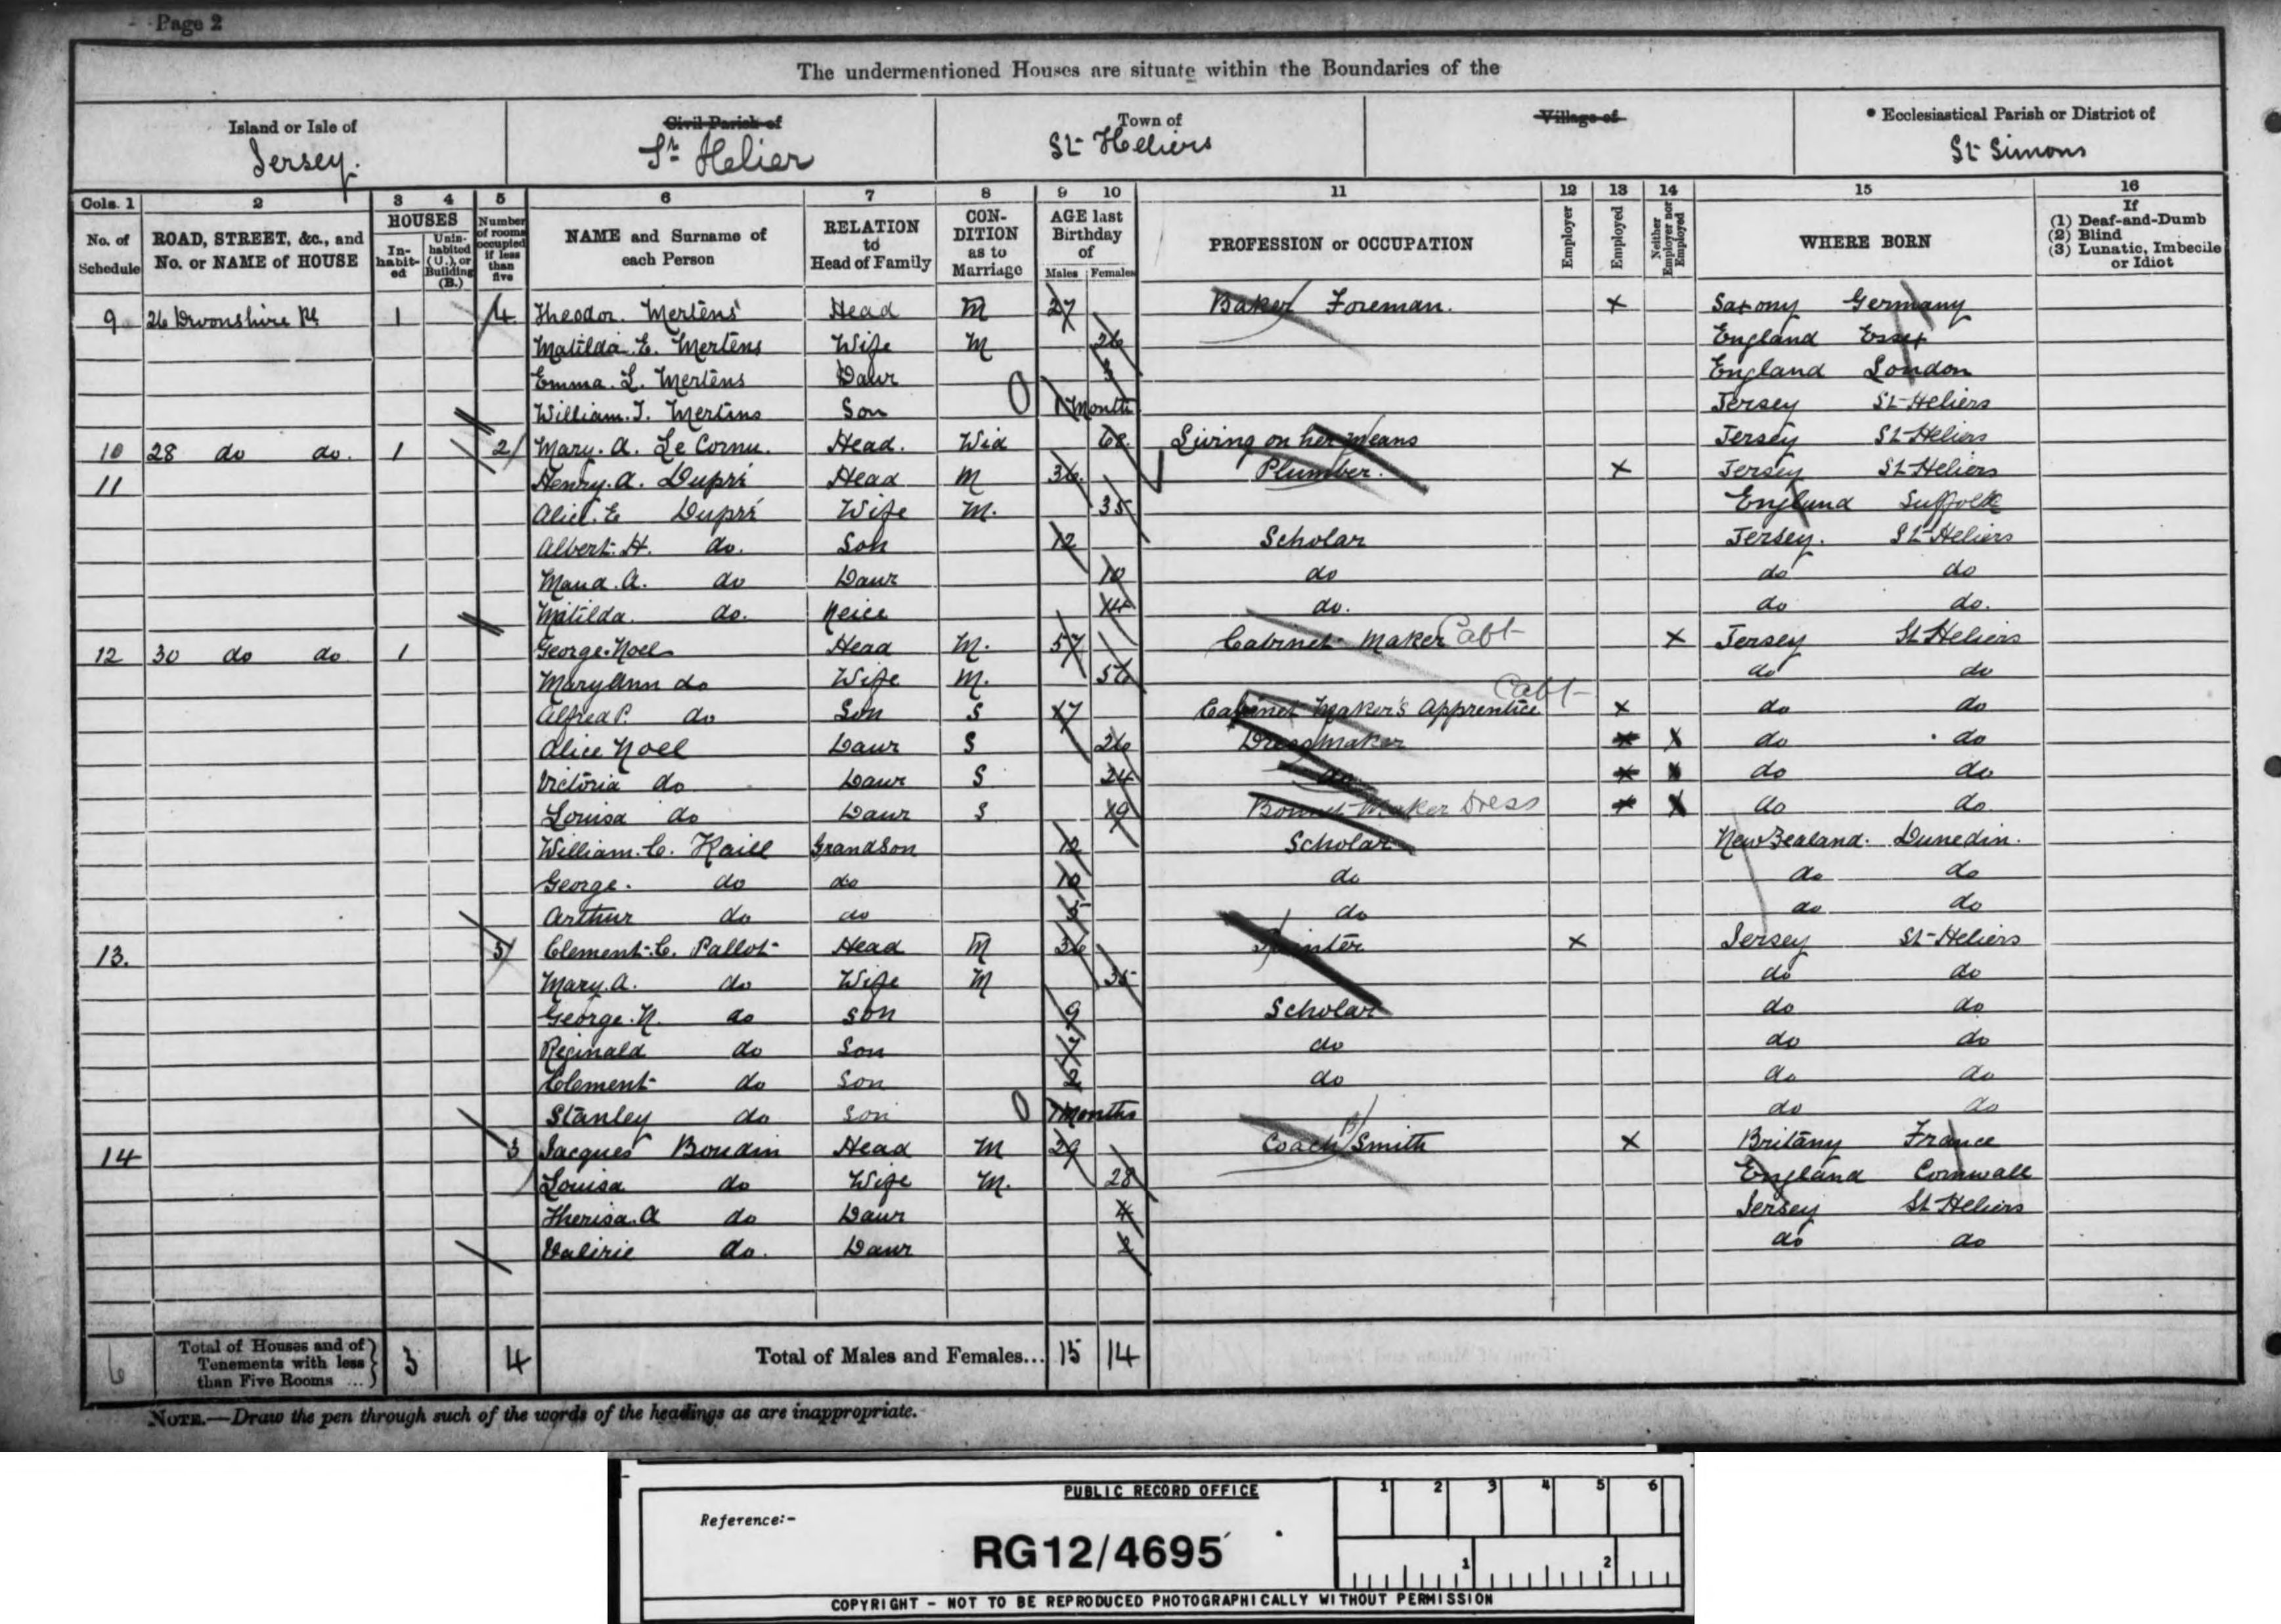 Page 2
The undermentioned Houses are situate within the Boundaries of the
Island or Isle of Jersey.
Civil Parish of St Helier
Town of St Heliers
Village of
* Ecclesiastical Parish or District of St Simons
Cols. 1 2 3 4 5 6 7 8 9 10 11 12 13 14 15 16
No. of Schedule
ROAD, STREET, &c., and No. or NAME of HOUSE
HOUSES
In-habit-ed
Unin-habited (U.), or Building (B.)
Number of rooms occupied if less than five
NAME and Surname of each Person
RELATION to Head of Family
CON-DITION as to Marriage
AGE last Birthday of
Males Females
PROFESSION or OCCUPATION
Employer
Employed
Neither Employer nor Employed
WHERE BORN
If
(1) Deaf-and-Dumb
(2) Blind
(3) Lunatic, Imbecile or Idiot
9 26 Devonshire Pl 1 4 Theodor. Mertens Head M 27 Baker Foreman. x Saxony Germany
Matilda. E. Mertens Wife M 26 England Essex
Emma. L. Mertens Daur 3 England London
William. T. Mertens Son 1 Month Jersey St Heliers
10 28 do do. 1 2 Mary. A. Le Cornu. Head. Wid 68. Living on her means Jersey St Heliers
11 Henry. A. Dupré Head M 36. Plumber. x Jersey St Heliers
Alice. E Dupré Wife M. 35 England Suffolk
Albert. H. do. Son 12 Scholar Jersey. St Heliers
Maud. A. do Daur 10 do do do
Matilda. do. Neice 14 do. do do.
12 30 do do 1 George Noel Head M. 57 Cabinet Maker Cabt x Jersey St Heliers
Mary Ann do Wife M. 56 do do
Alfred P. do Son S 17 Cabinet Maker's Apprentice Cabt x do do
Alice Noel Daur S 26 Dressmaker x x do do
Victoria do Daur S 24 do x x do do
Louisa do Daur S 19 Bonnet Maker Dress x x do do
William. C. Kaill Grandson 12 Scholar New Zealand. Dunedin.
George. do do 10 do do do
Arthur do do 5 do do do
13. 3 Clement. C. Pallot Head M 36 Painter x Jersey St Heliers
Mary. A. do Wife M 35 do do
George. N. do Son 9 Scholar do do
Reginald do Son 7 do do do
Clement do Son 2 do do do
Stanley do Son 7 Months do do
14 3 Jacques Boudin Head M 29 Coach Smith x Britany France
Louisa do Wife M. 28 England Cornwall
Therisa. A do Daur 4 Jersey St Heliers
Valirie do. Daur 2 do do
6 Total of Houses and of Tenements with less than Five Rooms ... 3 4 Total of Males and Females... 15 14
NOTE.—Draw the pen through such of the words of the headings as are inappropriate.
PUBLIC RECORD OFFICE
1 2 3 4 5 6
Reference:-
RG12/4695
1 2
COPYRIGHT - NOT TO BE REPRODUCED PHOTOGRAPHICALLY WITHOUT PERMISSION